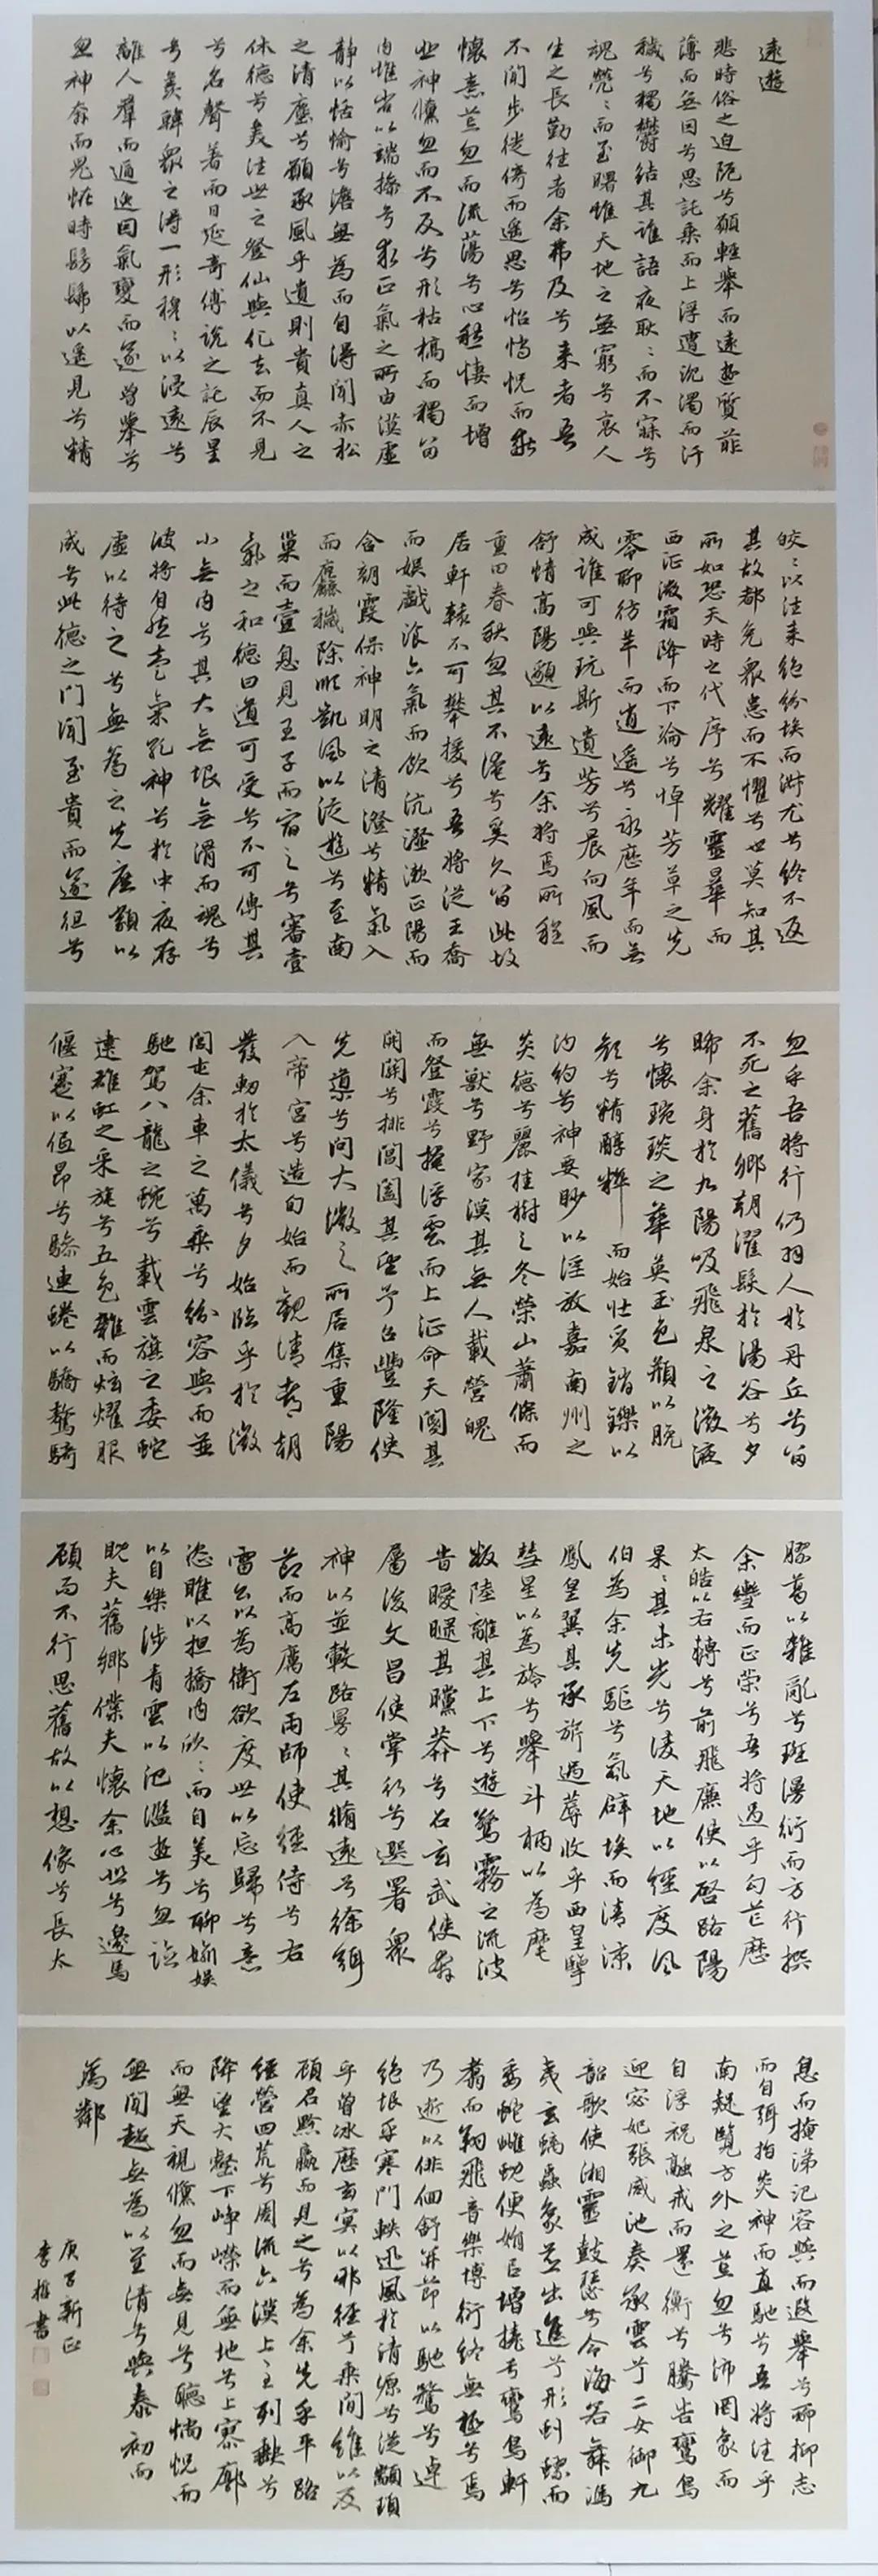 遠遊
悲時俗之迫阨兮願輕舉而遠遊質菲
薄而無因兮思託乘而上浮遭沉濁而汙
穢兮獨鬱結其誰語夜耿〻而不寐兮
魂煢〻而至曙惟天地之無窮兮哀人
生之長勤往者余弗及兮來者吾
不聞步徙倚而遙思兮怡惝怳而乖
懷意荒忽而流蕩兮心愁悽而增
悲神儵忽而不反兮形枯槁而獨留
內惟省以端操兮求正氣之所由漠虛
靜以恬愉兮澹無為而自得聞赤松
之清塵兮願承風乎遺則貴真人之
休德兮美往世之登仙與化去而不見
兮名聲著而日延奇傅說之託辰星
兮羨韓眾之得一形穆〻以浸遠兮
離人羣而遁逸因氣變而遂曾舉兮
忽神奔而鬼怪時髣髴以遙見兮精
皎〻以往來絕紛埃而淑尤兮終不返
其故都免眾患而不懼兮世莫知其
所如恐天時之代序兮耀靈曄而
西征微霜降而下淪兮悼芳草之先
零聊彷羊而逍遙兮永歷年而無
成誰可與玩斯遺芳兮晨向風而
舒情高陽邈以遠兮余將焉所程
重曰春秋忽其不淹兮奚久留此故
居軒轅不可攀援兮吾將從王喬
而娛戲湌六氣而飲沆瀣漱正陽而
含朝霞保神明之清澄兮精氣入
而麤穢除順凱風以從遊兮至南
巢而壹息見王子而宿之兮審壹
氣之和德曰道可受兮不可傳其
小無內兮其大無垠無滑而魂兮
彼將自然壹氣孔神兮於中夜存
虛以待之兮無為之先庶類以
成兮此德之門聞至貴而遂徂兮
忽乎吾將行仍羽人於丹丘兮留
不死之舊鄉朝濯髮於湯谷兮夕
晞余身於九陽吸飛泉之微液
兮懷琬琰之華英玉色頩以脕
顏兮精醇粹而始壯質銷鑠以
汋約兮神要眇以淫放嘉南州之
炎德兮麗桂樹之冬榮山蕭條而
無獸兮野寂漠其無人載營魄
而登霞兮掩浮雲而上征命天閽其
開關兮排閶闔其望予召豐隆使
先導兮問大微之所居集重陽
入帝宮兮造旬始而觀清都朝
發軔於太儀兮夕始臨乎於微
閭屯余車之萬乘兮紛容與而並
馳駕八龍之蜿兮載雲旗之委蛇
建雄虹之采旄兮五色雜而炫耀服
偃蹇以低昂兮驂連蜷以驕驁騎
膠葛以雜亂兮斑漫衍而方行撰
余轡而正策兮吾將過乎勾芒歷
太皓以右轉兮前飛廉使以啓路陽
杲〻其未光兮淩天地以徑度風
伯為余先驅兮氛辟埃而清涼
鳳皇翼其承旂過蓐收乎西皇擥
彗星以為旍兮舉斗柄以為麾
叛陸離其上下兮遊驚霧之流波
旹曖曃其曭莽兮召玄武使奔
屬後文昌使掌行兮選署眾
神以並轂路曼〻其脩遠兮徐弭
節而高厲左雨師使徑侍兮右
雷公以為衛欲度世以忘歸兮意
恣睢以担撟內欣〻而自美兮聊媮娛
以自樂涉青雲以汜濫遊兮忽臨
睨夫舊鄉僕夫懷余心悲兮邊馬
顧而不行思舊故以想像兮長太
息而掩涕汜容與而遐舉兮聊抑志
而自弭指炎神而直馳兮吾將往乎
南疑覽方外之荒忽兮沛罔象而
自浮祝融戒而還衡兮騰告鸞鳥
迎宓妃張咸池奏承雲兮二女御九
韶歌使湘靈鼓瑟兮令海若舞馮
夷玄螭蟲象並出進兮形蟉虯而
委蛇雌蜺便娟以增撓兮鸞鳥軒
翥而翔飛音樂博衍終無極兮焉
乃逝以俳佪舒并節以馳騖兮逴
絕垠乎寒門軼迅風於清源兮從顓頊
乎曾冰歷玄冥以邪徑兮乘間維以反
顧召黔羸而見之兮為余先乎平路
經營四荒兮周流六漠上至列缺兮
降望大壑下崢嶸而無地兮上寥廓
而無天視儵忽而無見兮聽惝怳而
無聞超無為以至清兮與泰初而
為鄰
庚子新正
書